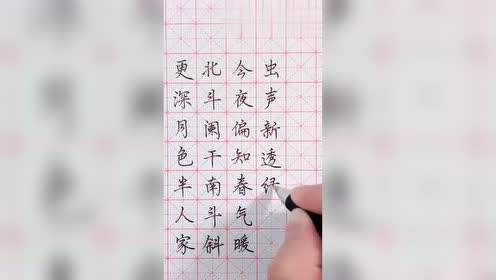 更深月色半人家
北斗阑干南斗斜
今夜偏知春气暖
虫声新透